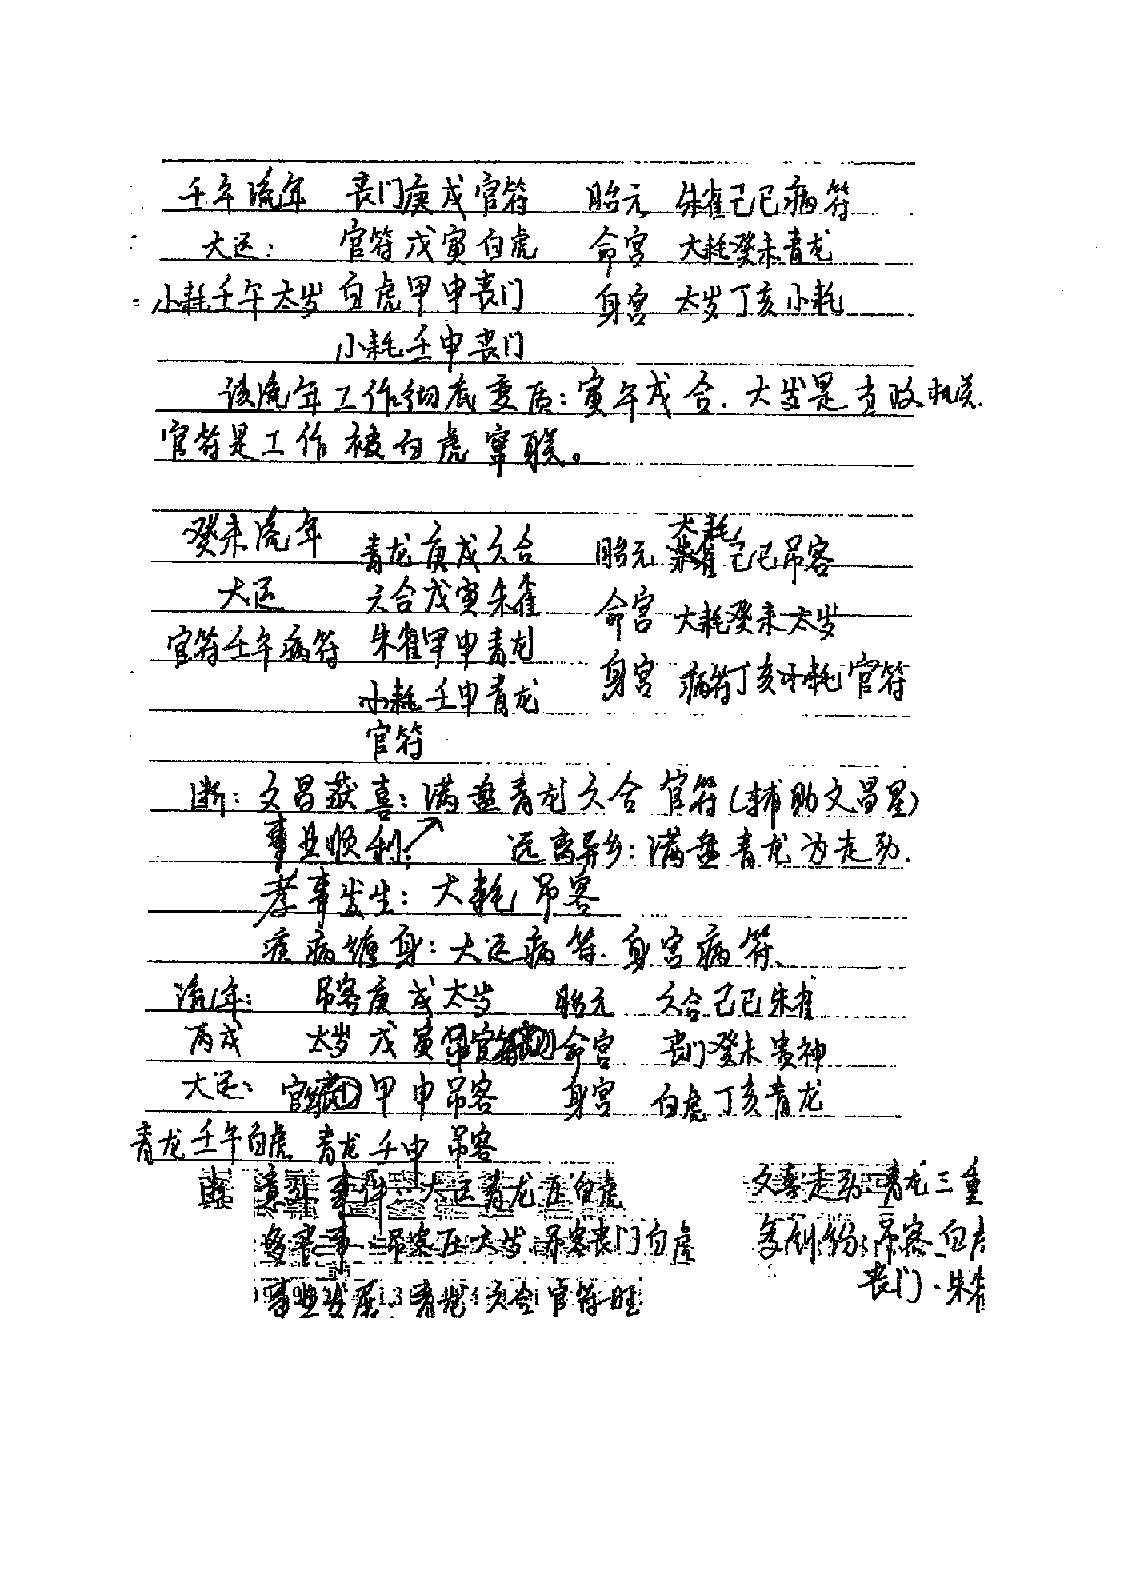 壬午流年 丧门庚戌官符 胎元 朱雀己巳病符
大运: 官符戊寅白虎 命宫 大耗癸未青龙
小耗壬午太岁 白虎甲申丧门 身宫 太岁丁亥小耗
小耗壬申丧门
该流年工作彻底变质:寅午戌合.太岁是
官符是工作被白虎牢联。
癸未流年 青龙庚戌六合 胎元 大耗己巳吊客
大运 六合戊寅朱雀 命宫 大耗癸未太岁
官符壬午病符 朱雀甲申青龙 身宫 病符丁亥小耗官符
小耗壬申青龙
官符
断:文昌获喜:满盘青龙六合官符(辅助文昌星)
事业顺利: 远离异乡:满盘青龙为走动.
孝事发生:大耗吊客
疾病缠身:大运病符.身宫病符、
流年: 吊客庚戌太岁 胎元 六合己巳朱雀
丙戌 太岁戊寅 命宫 丧门癸未贵神
大运: 甲申吊客 身宫 白虎丁亥青龙
青龙壬午白虎 青龙壬申吊客
意外事件:大运青龙压白虎 文喜走动:青龙三重
丧事:吊客压太岁.吊客丧门白虎 吊客.白虎
丧门.朱雀
事业发展:青龙六合官符旺